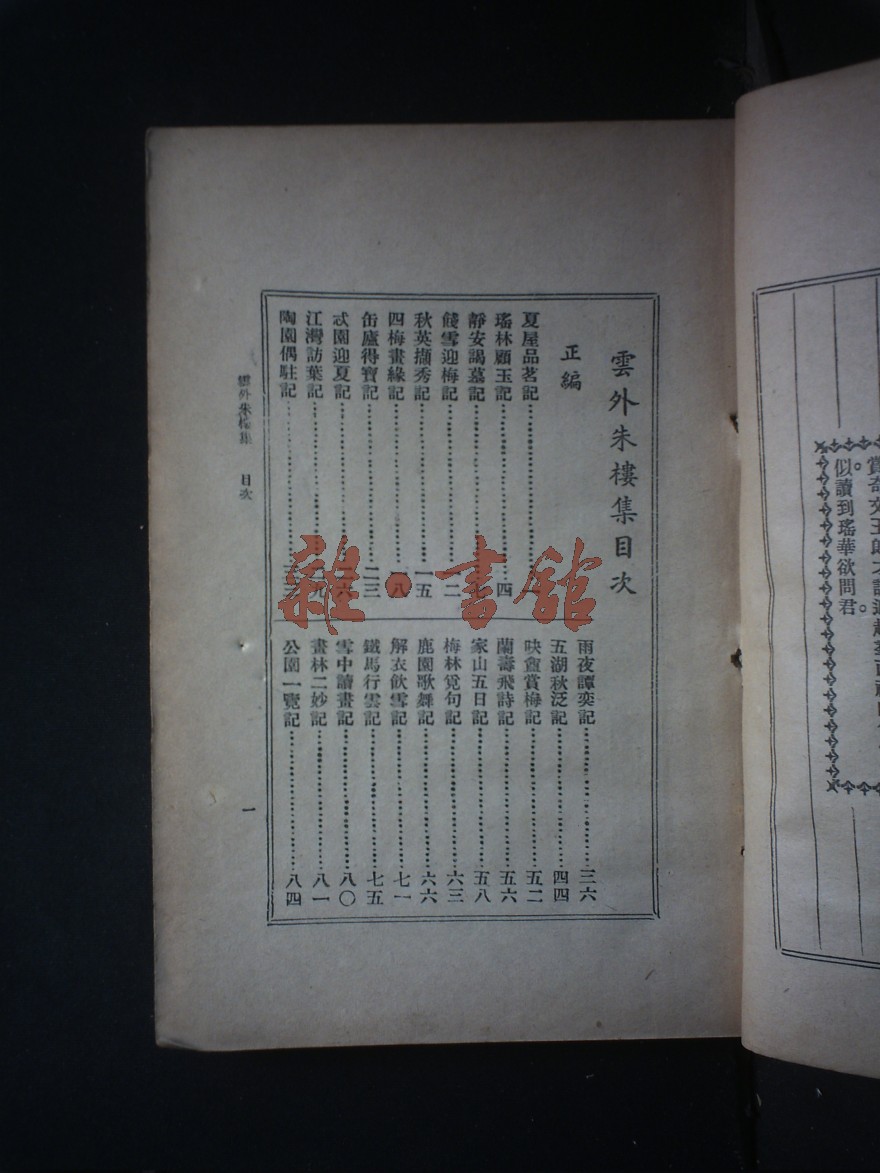 賞奇文王郎才調
似讀到瑤華欲問君。
雲外朱樓集目次
正編
夏屋品茗記
瑤林顧玉記……四
靜安謁墓記……七
餞雪迎梅記……一二
秋英擷秀記……一五
四梅畫緣記……一八
缶廬得寶記……二三
忒園迎夏記……二六
江灣訪葉記……二九
陶園偶駐記
雨夜譚奕記……三六
五湖秋泛記……四四
賞梅記……五二
蘭壽飛詩記……五六
家山五日記……五八
梅林覓句記……六三
鹿園歌舞記……六六
解衣飲雪記……七一
鐵馬行雲記……七五
雪中讀畫記……八〇
畫林二妙記……八一
公園一覽記……八四
雲外朱樓集 目次
一
雜·書館